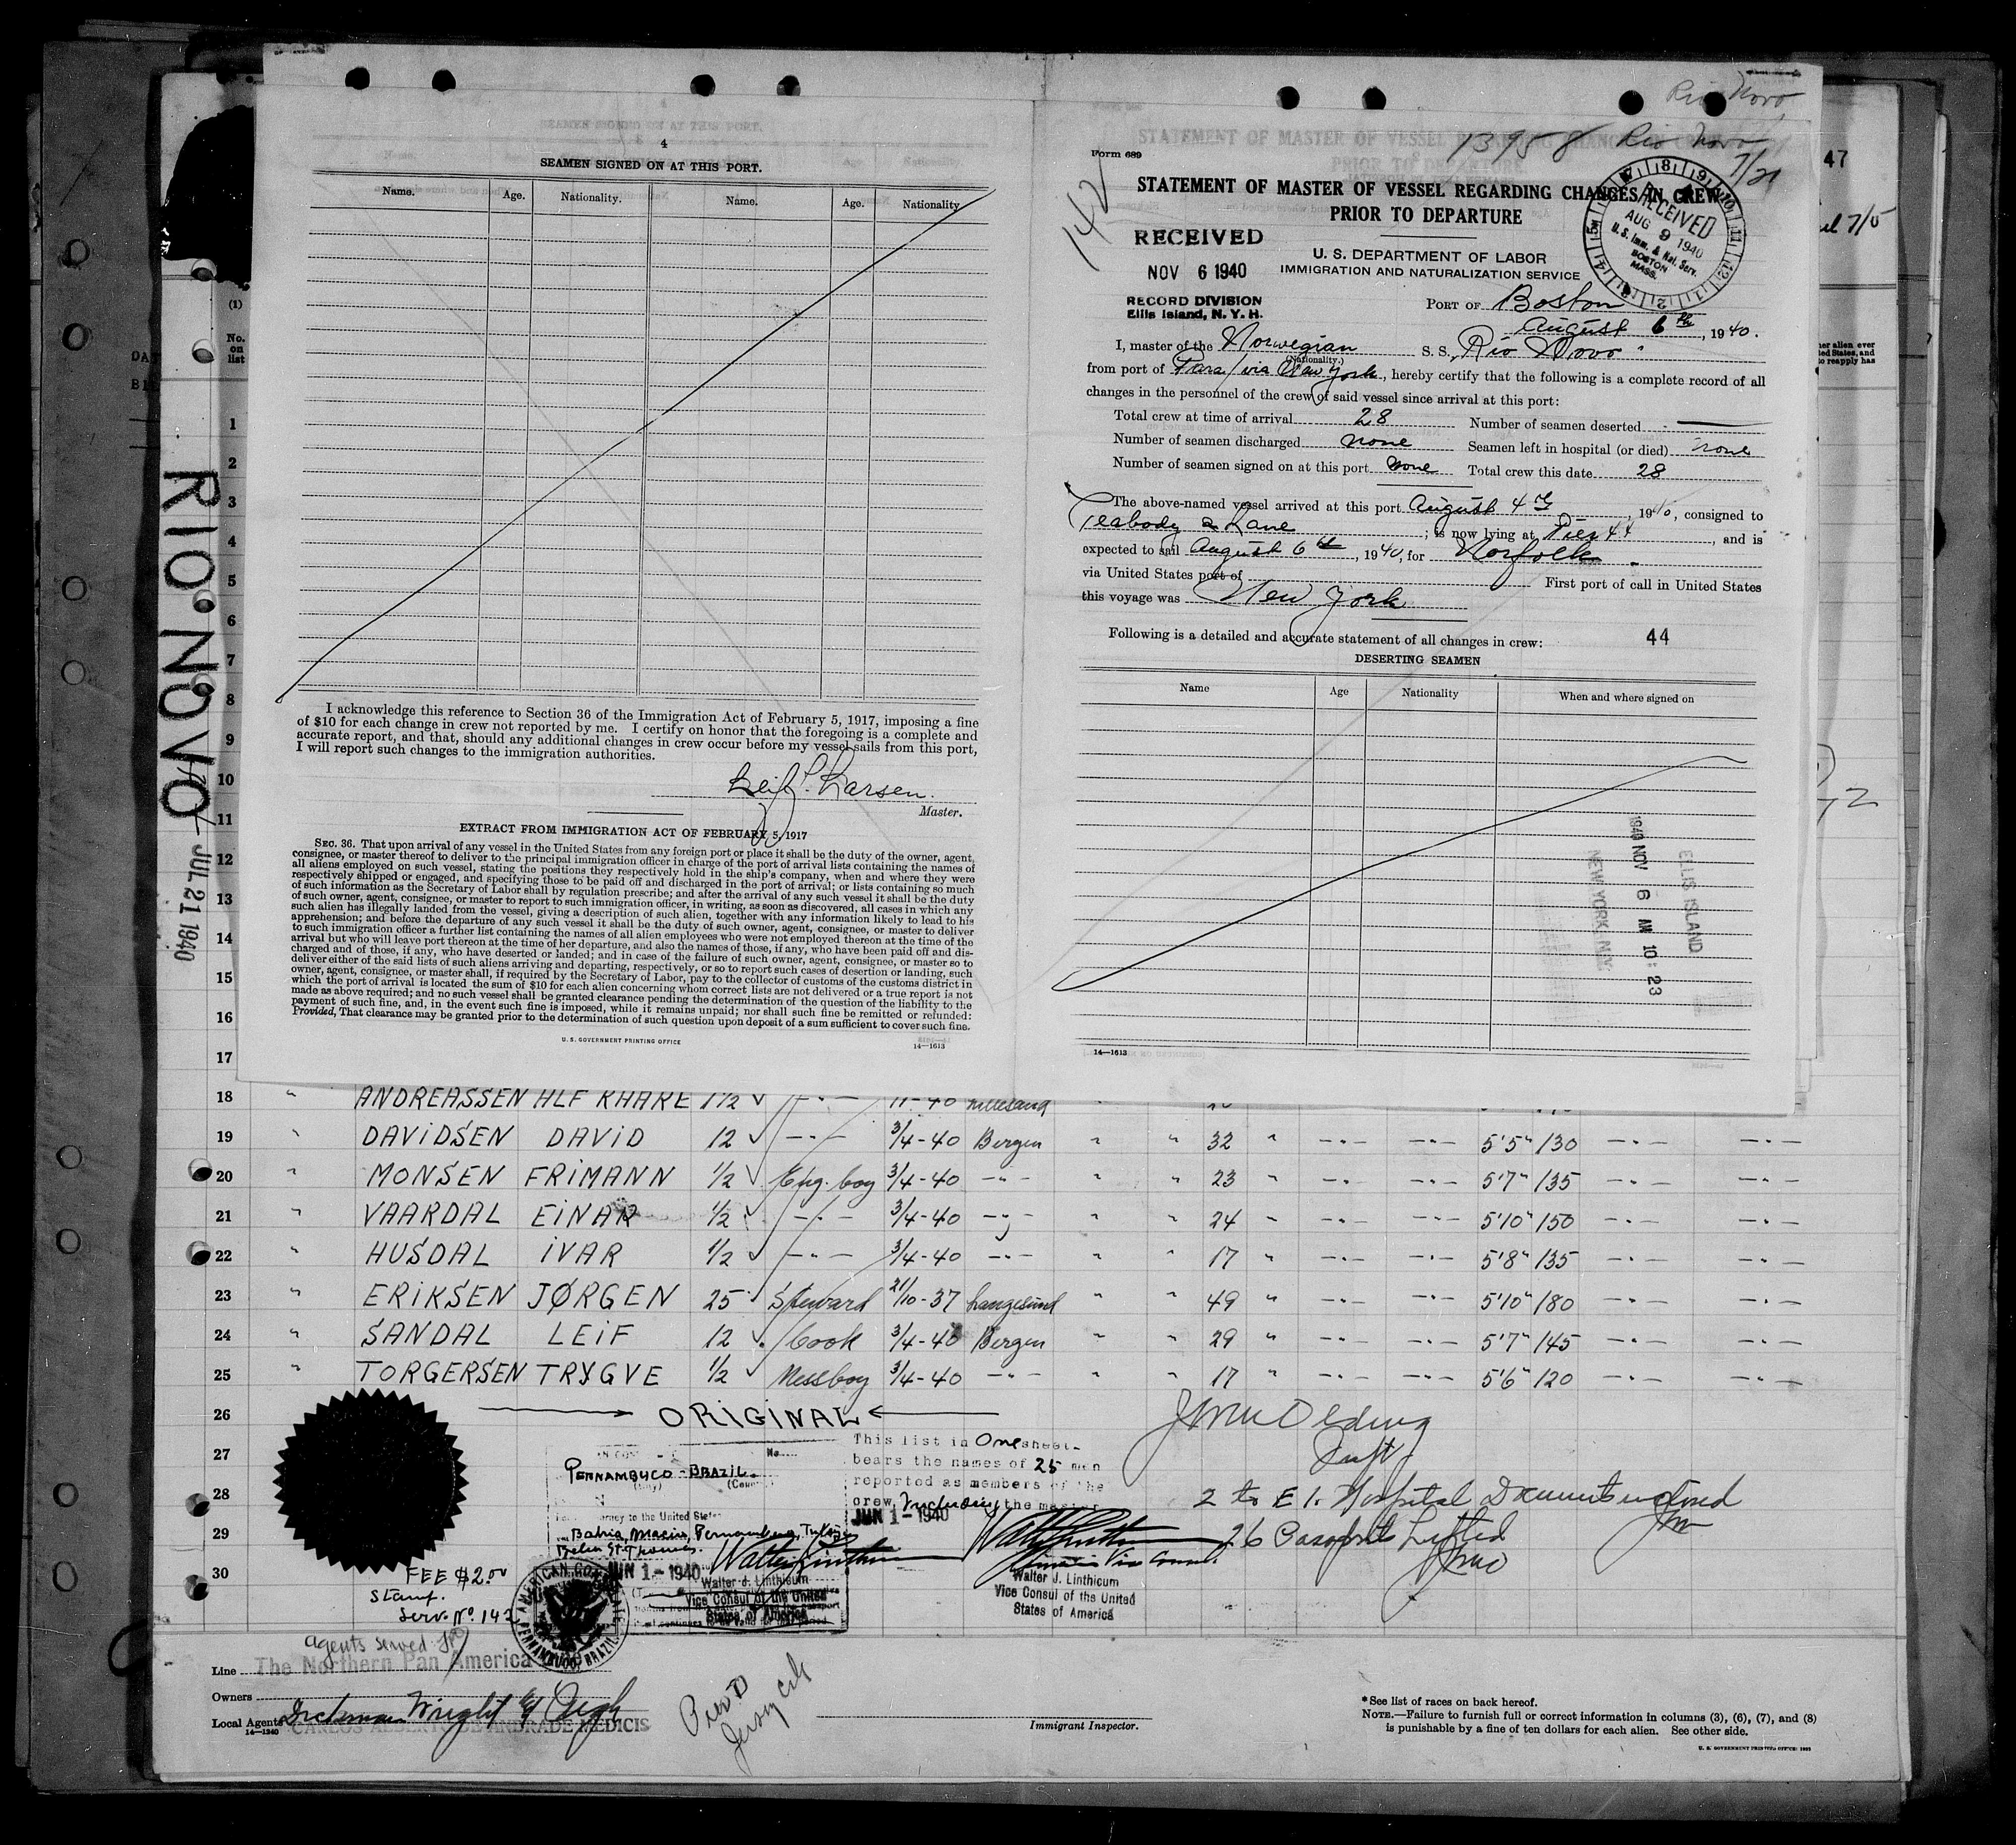 4
SEAMEN SIGNED ON AT THIS PORT.
Name. Age. Nationality. Name. Age. Nationality
I acknowledge this reference to Section 36 of the Immigration Act of February 5, 1917, imposing a fine
of $10 for each change in crew not reported by me. I certify on honor that the foregoing is a complete and
accurate report, and that, should any additional changes in crew occur before my vessel sails from this port,
I will report such changes to the immigration authorities.
Leif L. Larsen.
Master.
EXTRACT FROM IMMIGRATION ACT OF FEBRUARY 5, 1917
SEC. 36. That upon arrival of any vessel in the United States from any foreign port or place it shall be the duty of the owner, agent,
consignee, or master thereof to deliver to the principal immigration officer in charge of the port of arrival lists containing the names of
all aliens employed on such vessel, stating the positions they respectively hold in the ship's company, when and where they were
respectively shipped or engaged, and specifying those to be paid off and discharged in the port of arrival; or lists containing so much
of such information as the Secretary of Labor shall by regulation prescribe; and after the arrival of any such vessel it shall be the duty
of such owner, agent, consignee, or master to report to such immigration officer, in writing, as soon as discovered, all cases in which any
such alien has illegally landed from the vessel, giving a description of such alien, together with any information likely to lead to his
apprehension; and before the departure of any such vessel it shall be the duty of such owner, agent, consignee, or master to deliver
to such immigration officer a further list containing the names of all alien employees who were not employed thereon at the time of the
arrival but who will leave port thereon at the time of her departure, and also the names of those, if any, who have been paid off and dis-
charged and of those, if any, who have deserted or landed; and in case of the failure of such owner, agent, consignee, or master so to
deliver either of the said lists of such aliens arriving and departing, respectively, or so to report such cases of desertion or landing, such
owner, agent, consignee, or master shall, if required by the Secretary of Labor, pay to the collector of customs of the customs district in
which the port of arrival is located the sum of $10 for each alien concerning whom correct lists are not delivered or a true report is not
made as above required; and no such vessel shall be granted clearance pending the determination of the question of the liability to the
payment of such fine, and, in the event such fine is imposed, while it remains unpaid; nor shall such fine be remitted or refunded:
Provided, That clearance may be granted prior to the determination of such question upon deposit of a sum sufficient to cover such fine.
U. S. GOVERNMENT PRINTING OFFICE
14—1613
Rio Novo
13958 Rio Novo
7/21
Form 689
142
STATEMENT OF MASTER OF VESSEL REGARDING CHANGES IN CREW
PRIOR TO DEPARTURE
RECEIVED
NOV 6 1940
RECORD DIVISION
Ellis Island, N. Y. H.
U. S. DEPARTMENT OF LABOR
IMMIGRATION AND NATURALIZATION SERVICE
RECEIVED
AUG 9 1940
U. S. Imm. & Nat. Serv.
BOSTON
MASS.
PORT OF Boston
August 6th, 1940.
I, master of the Norwegian S. S. Rio Novo
(Nationality.)
from port of Para/via New York, hereby certify that the following is a complete record of all
changes in the personnel of the crew of said vessel since arrival at this port:
Total crew at time of arrival 28 Number of seamen deserted —
Number of seamen discharged none Seamen left in hospital (or died) none
Number of seamen signed on at this port none Total crew this date 28
The above-named vessel arrived at this port August 4th, 1940, consigned to
Peabody & Lane; is now lying at Pier 44, and is
expected to sail August 6th, 1940, for Norfolk
via United States port of First port of call in United States
this voyage was New York
Following is a detailed and accurate statement of all changes in crew: 44
DESERTING SEAMEN
Name Age Nationality When and where signed on
ELLIS ISLAND
1940 NOV 6 AM 10:23
NEW YORK, N.Y.
14—1613
47
RIO NOVO
JUL 21 1940
(1)
No.
on
list
1
2
3
4
5
6
7
8
9
10
11
12
13
14
15
16
17
18 " ANDREASSEN ALF KAARE 1 1/2 —"— 11-40 Lillesand
19 " DAVIDSEN DAVID 12 —"— 3/4-40 Bergen " " 32 " —"— —"— 5'5" 130 —"— —"—
20 " MONSEN FRIMANN 1/2 Eng. boy 3/4-40 —"— " " 23 " —"— —"— 5'7" 135 —"— —"—
21 " VAARDAL EINAR 1/2 —"— 3/4-40 —"— " " 24 " —"— —"— 5'10" 150 —"— —"—
22 " HUSDAL IVAR 1/2 —"— 3/4-40 —"— " " 17 " —"— —"— 5'8" 135 —"— —"—
23 " ERIKSEN JØRGEN 25 Steward 21/10-37 Langesund " " 49 " —"— —"— 5'10" 180 —"— —"—
24 " SANDAL LEIF 12 Cook 3/4-40 Bergen " " 29 " —"— —"— 5'7" 145 —"— —"—
25 " TORGERSEN TRYGVE 1/2 Messboy 3/4-40 —"— " " 17 " —"— —"— 5'6" 120 —"— —"—
26 ORIGINAL
27
28
29
30
PERNAMBUCO - BRAZIL.
This list in One sheet
bears the names of 25 men
reported as members of the
crew, including the master
JUN 1 - 1940
Bahia, Maceio, Pernambuco,
Belem St. Thomas.
JUN 1 - 1940
Walter J. Linthicum
Vice Consul of the United
States of America
Walter J. Linthicum
Vice Consul of the United
States of America
FEE $2.00
Stamp.
Serv. No. 142
AMERICAN CONSULATE
PERNAMBUCO, BRAZIL
Insp
2 to E I. Hospital Documents enclosed
26 Passports Lifted
agents served
Line The Northern Pan America Line
Owners
Local Agents Wright
CARLOS ALBERTO DE ANDRADE MEDICIS
14—1240
Pier D
Jersey City
Immigrant Inspector.
* See list of races on back hereof.
NOTE.—Failure to furnish full or correct information in columns (3), (6), (7), and (8)
is punishable by a fine of ten dollars for each alien. See other side.
U. S. GOVERNMENT PRINTING OFFICE